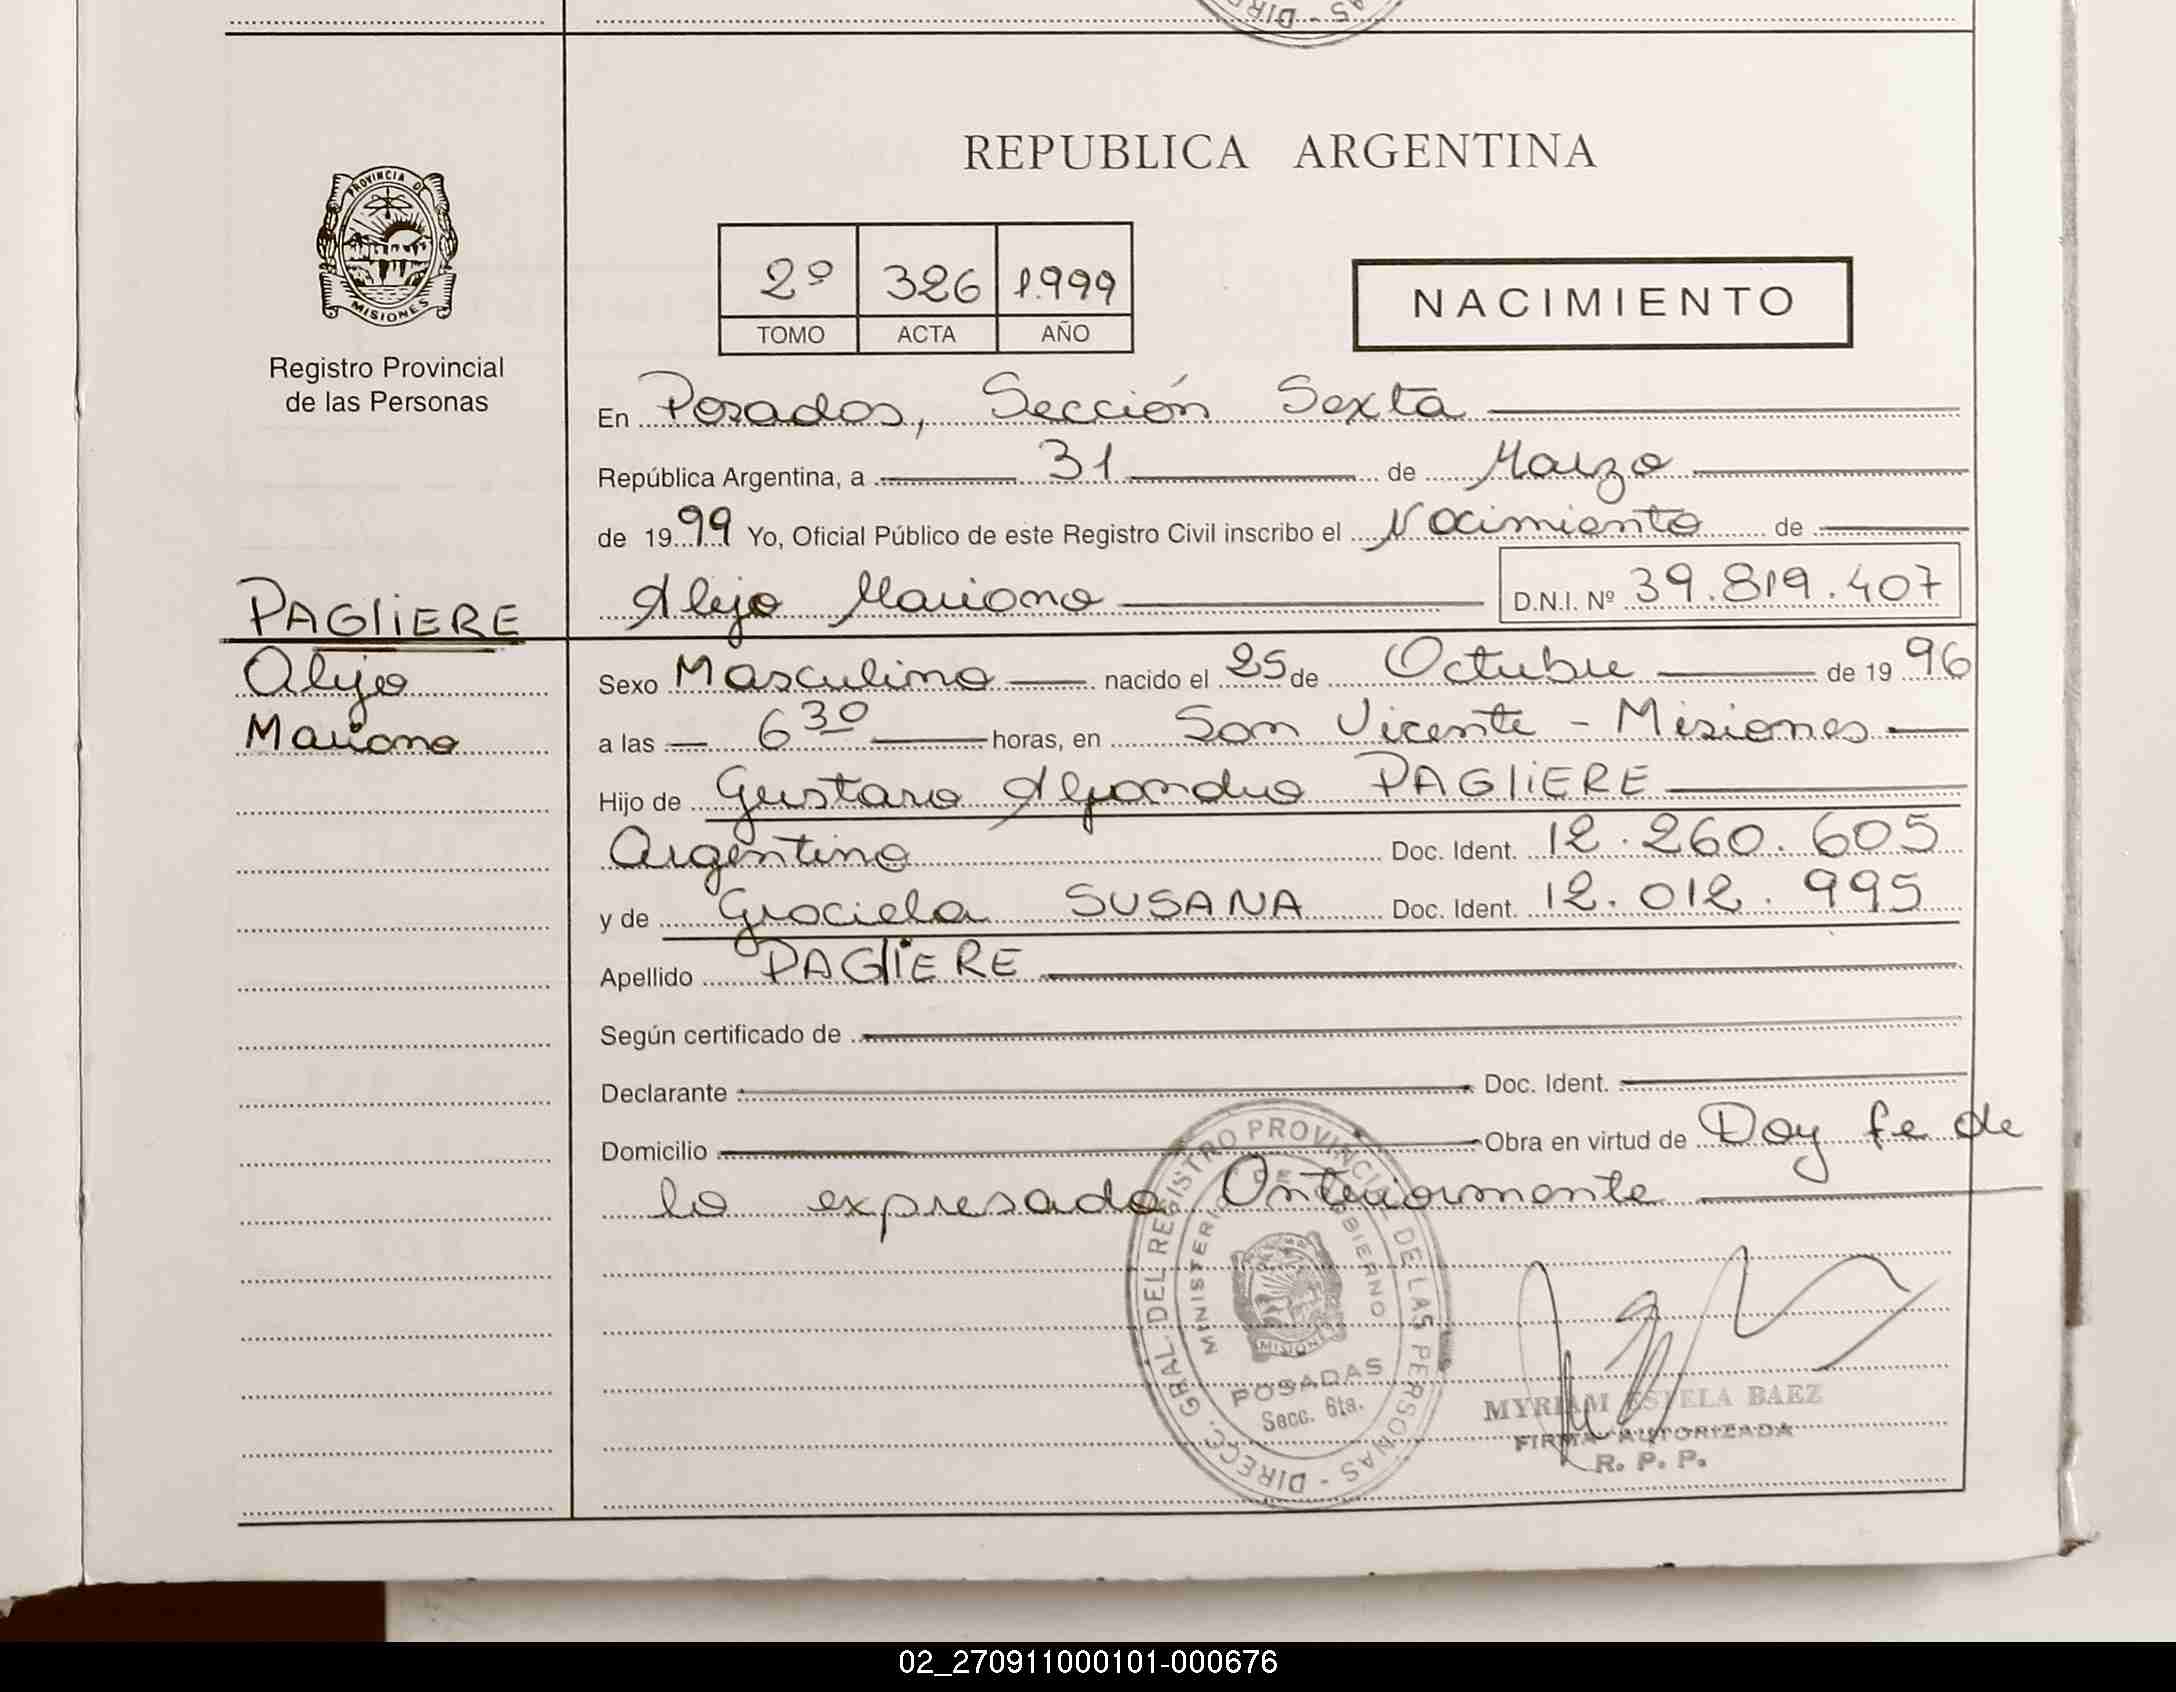 DIRECC. GRAL. DEL REGISTRO PROVINCIAL DE LAS PERSONAS
REPUBLICA ARGENTINA
PROVINCIA DE
MISIONES
Registro Provincial
de las Personas
2º 326 1.999
TOMO ACTA AÑO
NACIMIENTO
En Posadas, Sección Sexta
República Argentina, a 31 de Marzo
de 1999 Yo, Oficial Público de este Registro Civil inscribo el Nacimiento de
Alejo Mariano D.N.I. Nº 39.819.407
PAGLIERE
Alejo
Mariano
Sexo Masculino nacido el 25 de Octubre de 1996
a las 6 30 horas, en San Vicente - Misiones
Hijo de Gustavo Alejandro PAGLIERE
Argentino Doc. Ident. 12.260.605
y de Graciela SUSANA Doc. Ident. 12.012.995
Apellido PAGLIERE
Según certificado de
Declarante Doc. Ident.
Domicilio Obra en virtud de Doy fe de
lo expresado Anteriormente
DIRECC. GRAL. DEL REGISTRO PROVINCIAL DE LAS PERSONAS
MINISTERIO DE GOBIERNO
MISIONES
POSADAS
Secc. 6ta.
MYRIAM ESTELA BAEZ
FIRMA AUTORIZADA
R. P. P.
02_270911000101-000676